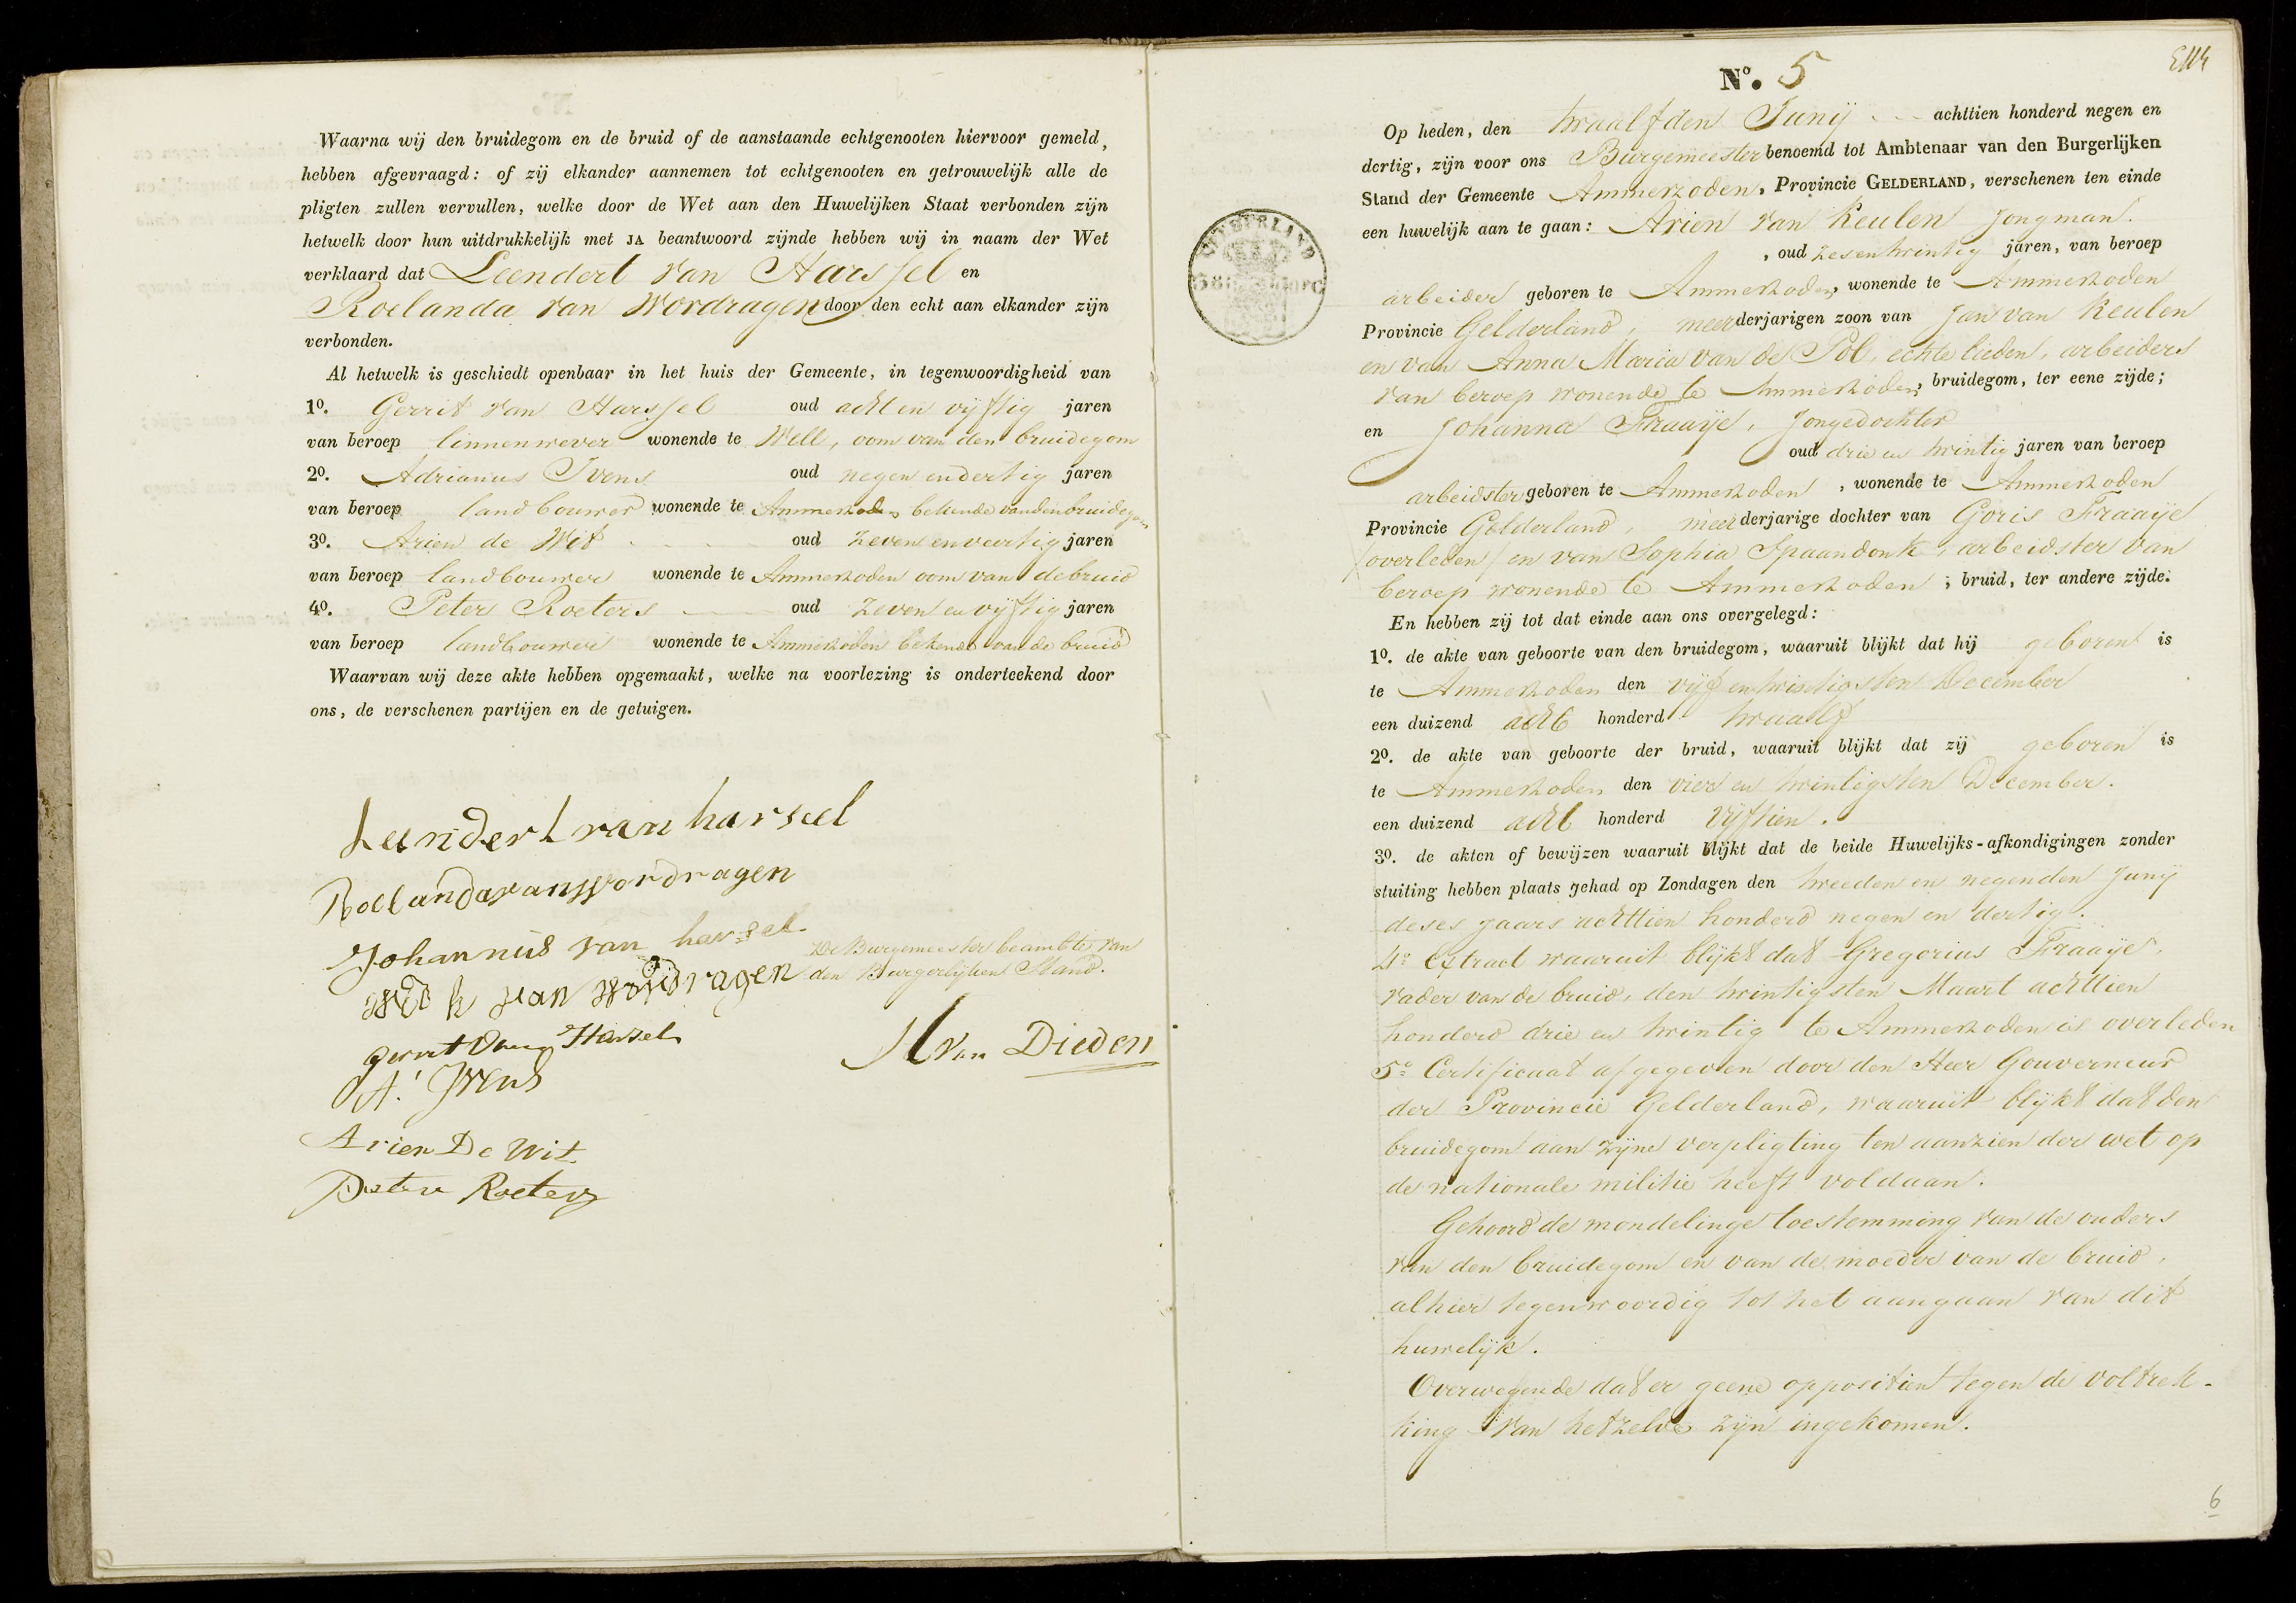 Waarna wij den bruidegom en de bruid of de aanstaande echtgenooten hiervoor gemeld,
hebben afgevraagd: of zij elkander aannemen tot echtgenooten en getrouwelijk alle de
pligten zullen vervullen, welke door de Wet aan den Huwelijken Staat verbonden zijn
hetwelk door hun uitdrukkelijk met JA beantwoord zijnde hebben wij in naam der Wet
verklaard dat Leendert van Harssel en
Roelanda van Wordragen door den echt aan elkander zijn
verbonden.
Al hetwelk is geschiedt openbaar in het huis der Gemeente, in tegenwoordigheid van
1o. Gerrit van Harssel oud acht en vyftig jaren
van beroep linnenwever wonende te Well, oom van den bruidegom
2o. Adrianus Ivens oud negen en dertig jaren
van beroep landbouwer wonende te Ammerzoden bekende van den bruidegom
3o. Arien de Wit oud zeven en veertig jaren
van beroep landbouwer wonende te Ammerzoden oom van de bruid
4o. Peter Roeters oud zeven en vyftig jaren
van beroep landbouwer wonende te Ammerzoden bekende van de bruid
Waarvan wij deze akte hebben opgemaakt, welke na voorlezing is onderteekend door
ons, de verschenen partijen en de getuigen.
Leendert van harsel
Roelanda van wordragen
Johannis van harsel
De Burgemeester beambte van
den Burgerlijken Stand.
van wordragen
gerrit van Harsel
A. Ivens
H van Dieden
Arien De Wit
Peter Roeters
No. 5
Op heden, den twaalfden Junij achttien honderd negen en
dertig, zijn voor ons Burgemeester benoemd tot Ambtenaar van den Burgerlijken
Stand der Gemeente Ammerzoden, Provincie GELDERLAND, verschenen ten einde
een huwelijk aan te gaan: Arien van Keulen jongman.
, oud zesentwintig jaren, van beroep
arbeider geboren te Ammerzoden, wonende te Ammerzoden
Provincie Gelderland, meerderjarigen zoon van Jan van Keulen
en van Anna Maria van de Pol, echte lieden, arbeiders
van beroep wonende te Ammerzoden, bruidegom, ter eene zijde;
en Johanna Fraaije, Jongedochter
oud drie en twintig jaren van beroep
arbeidster geboren te Ammerzoden, wonende te Ammerzoden
Provincie Gelderland, meerderjarige dochter van Goris Fraaije
/overleden/ en van Sophia Spaandonk, arbeidster van
beroep wonende te Ammerzoden; bruid, ter andere zijde.
En hebben zij tot dat einde aan ons overgelegd:
1o. de akte van geboorte van den bruidegom, waaruit blijkt dat hij geboren is
te Ammerzoden den vijf en twintigsten December
een duizend acht honderd twaalf
2o. de akte van geboorte der bruid, waaruit blijkt dat zij geboren is
te Ammerzoden den vier en twintigsten December.
een duizend acht honderd vijftien.
3o. de akten of bewijzen waaruit blijkt dat de beide Huwelijks-afkondigingen zonder
stuiting hebben plaats gehad op Zondagen den tweeden en negenden Junij
deses jaars achttien honderd negen en dertig.
4o Extract waaruit blijkt dat Gregorius Fraaije,
vader van de bruid, den twintigsten Maart achttien
honderd drie en twintig te Ammerzoden is overleden
5o Certificaat afgegeven door den Heer Gouverneur
der Provincie Gelderland, waaruit blijkt dat den
bruidegom aan zijne verpligting ten aanzien der wet op
de nationale militie heeft voldaan.
Gehoord de mondelinge toestemming van de ouders
van den bruidegom en van de moeder van de bruid,
alhier tegenwoordig tot het aangaan van dit
huwelijk.
Overwegende dat er geene oppositien tegen de voltrek-
king van hetzelve zijn ingekomen.
6